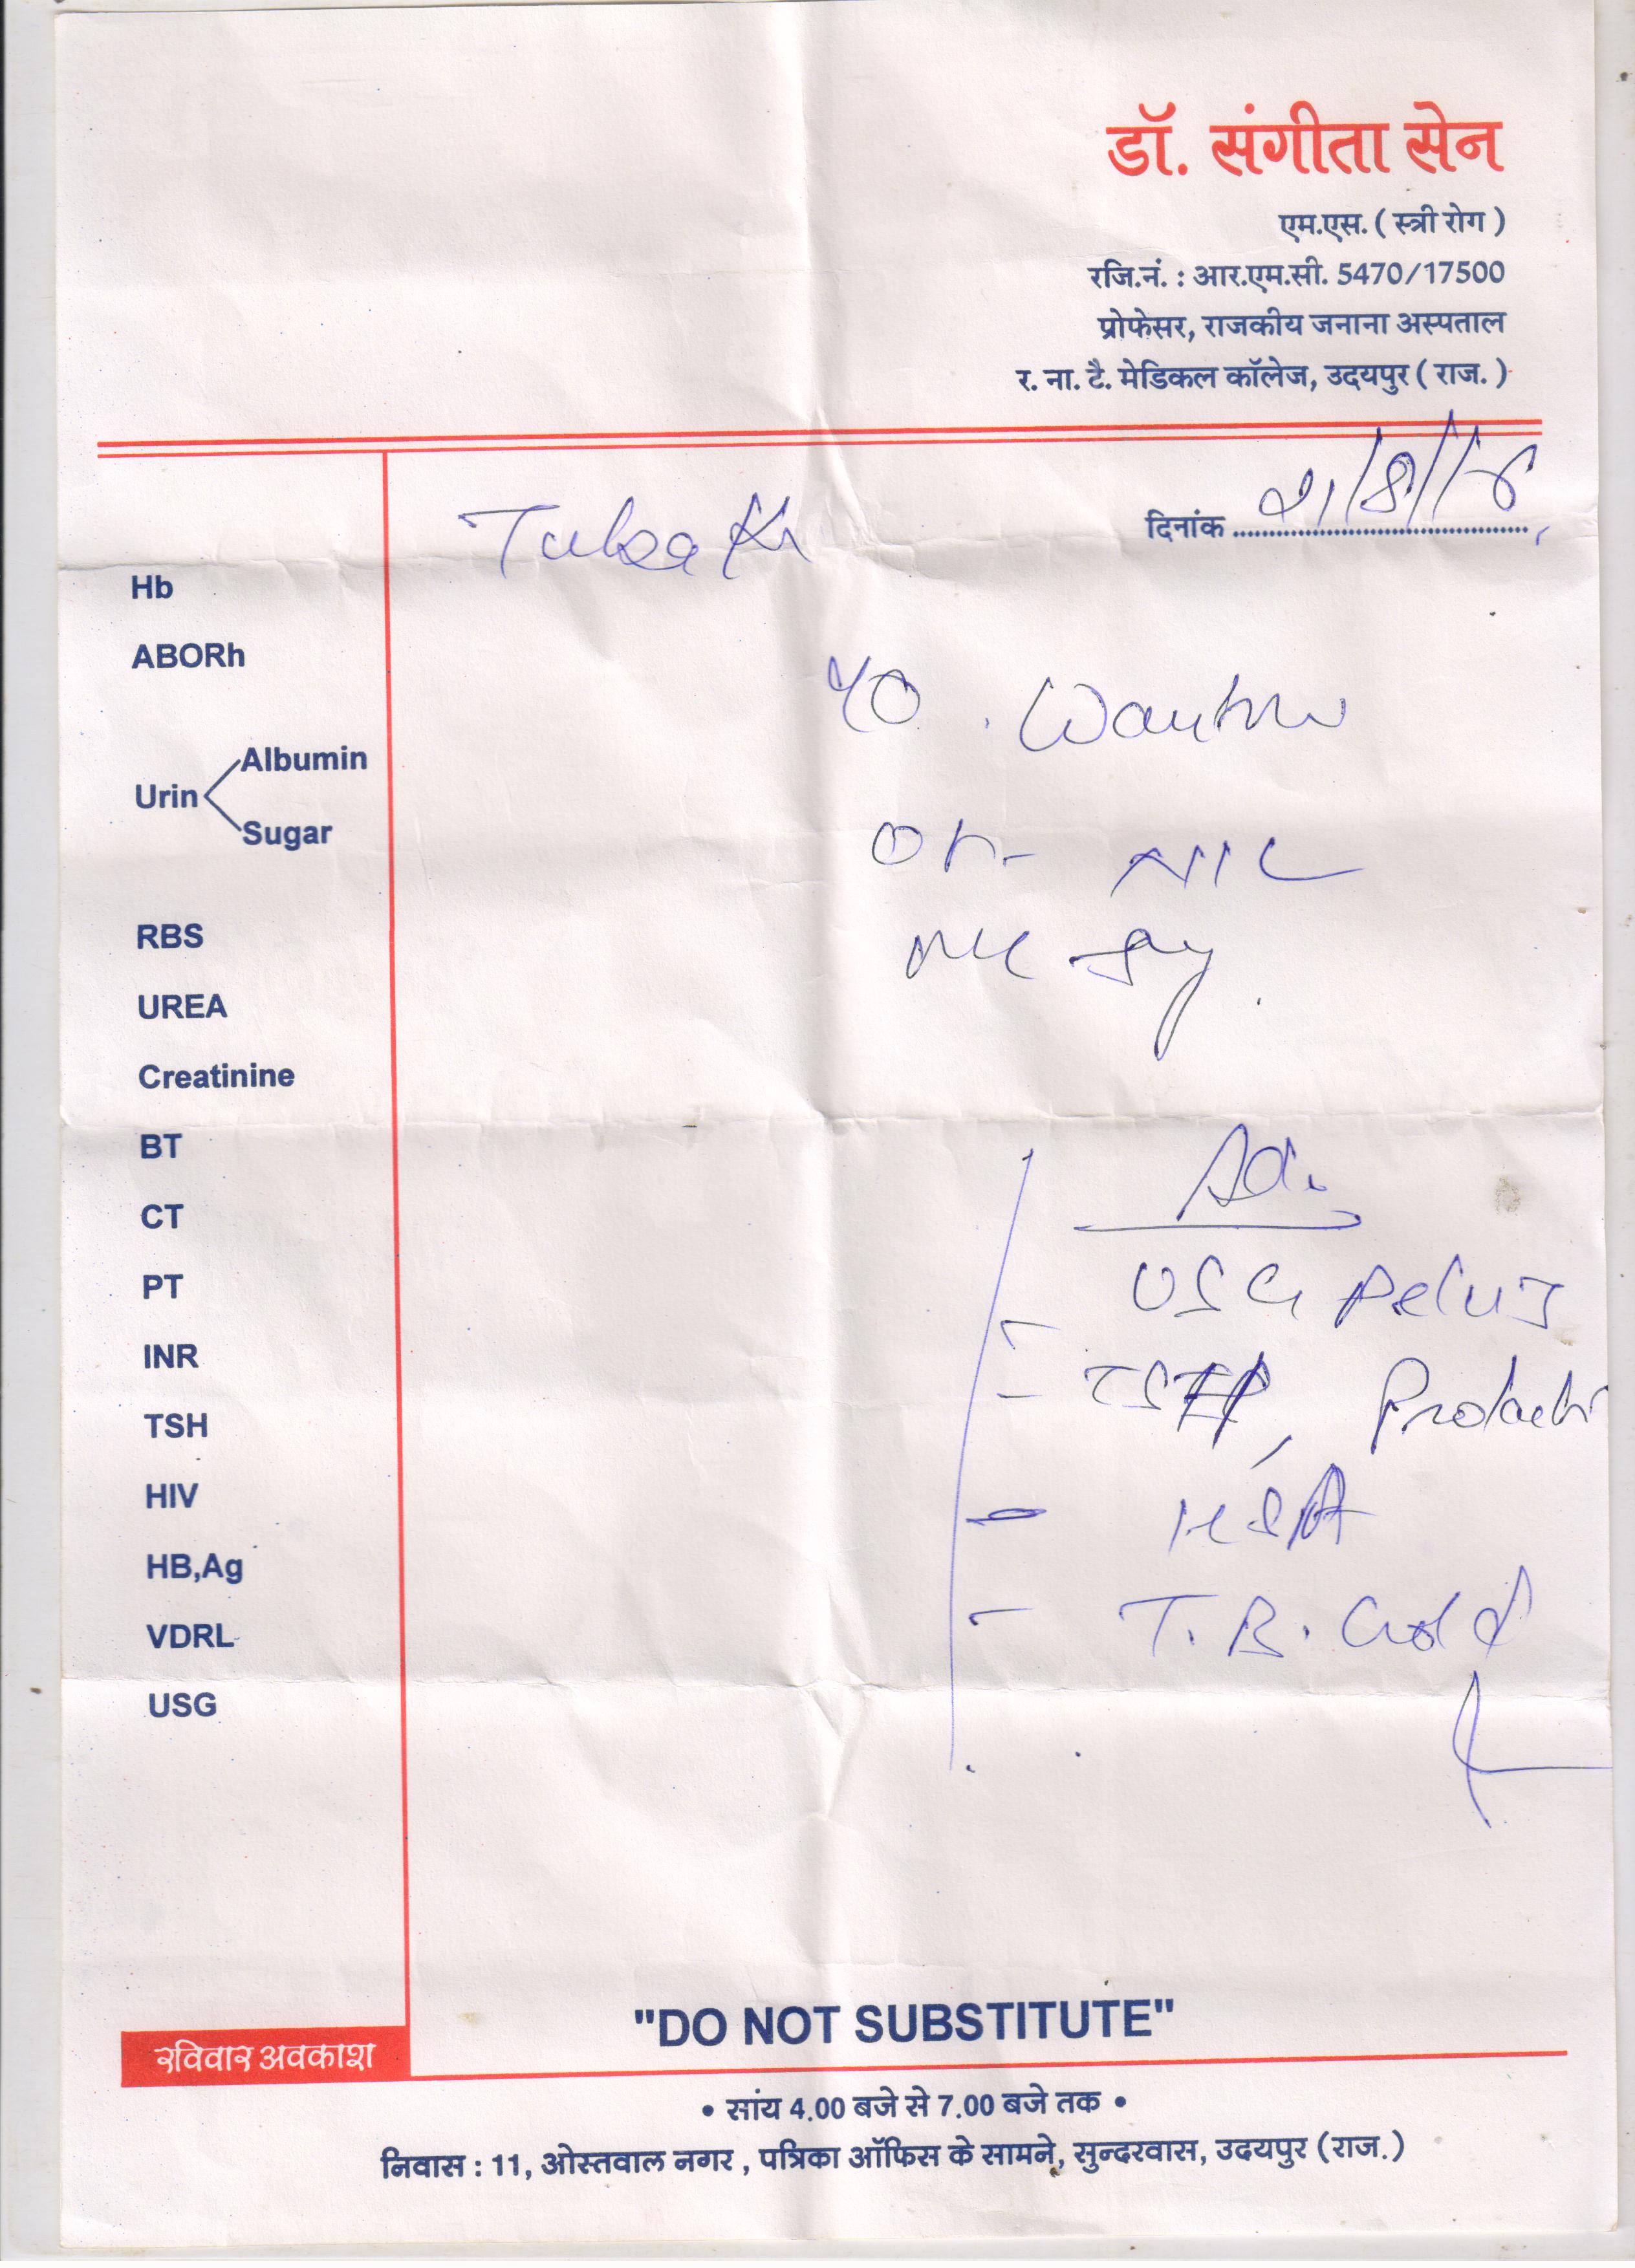 डॉ. संगीता सेन
एम.एस. ( स्त्री रोग )
रजि.नं. : आर.एम.सी. 5470/17500
प्रोफेसर, राजकीय जनाना अस्पताल
र. ना. टै. मेडिकल कॉलेज, उदयपुर ( राज. )
दिनांक
Hb
ABORh
Urin
Albumin
Sugar
RBS
UREA
Creatinine
BT
CT
PT
INR
TSH
HIV
HB,Ag
VDRL
USG
NIL
USG Pelvis
TSH,
T.B. Gold
"DO NOT SUBSTITUTE"
रविवार अवकाश
• सांय 4.00 बजे से 7.00 बजे तक •
निवास : 11, ओस्तवाल नगर , पत्रिका ऑफिस के सामने, सुन्दरवास, उदयपुर (राज.)